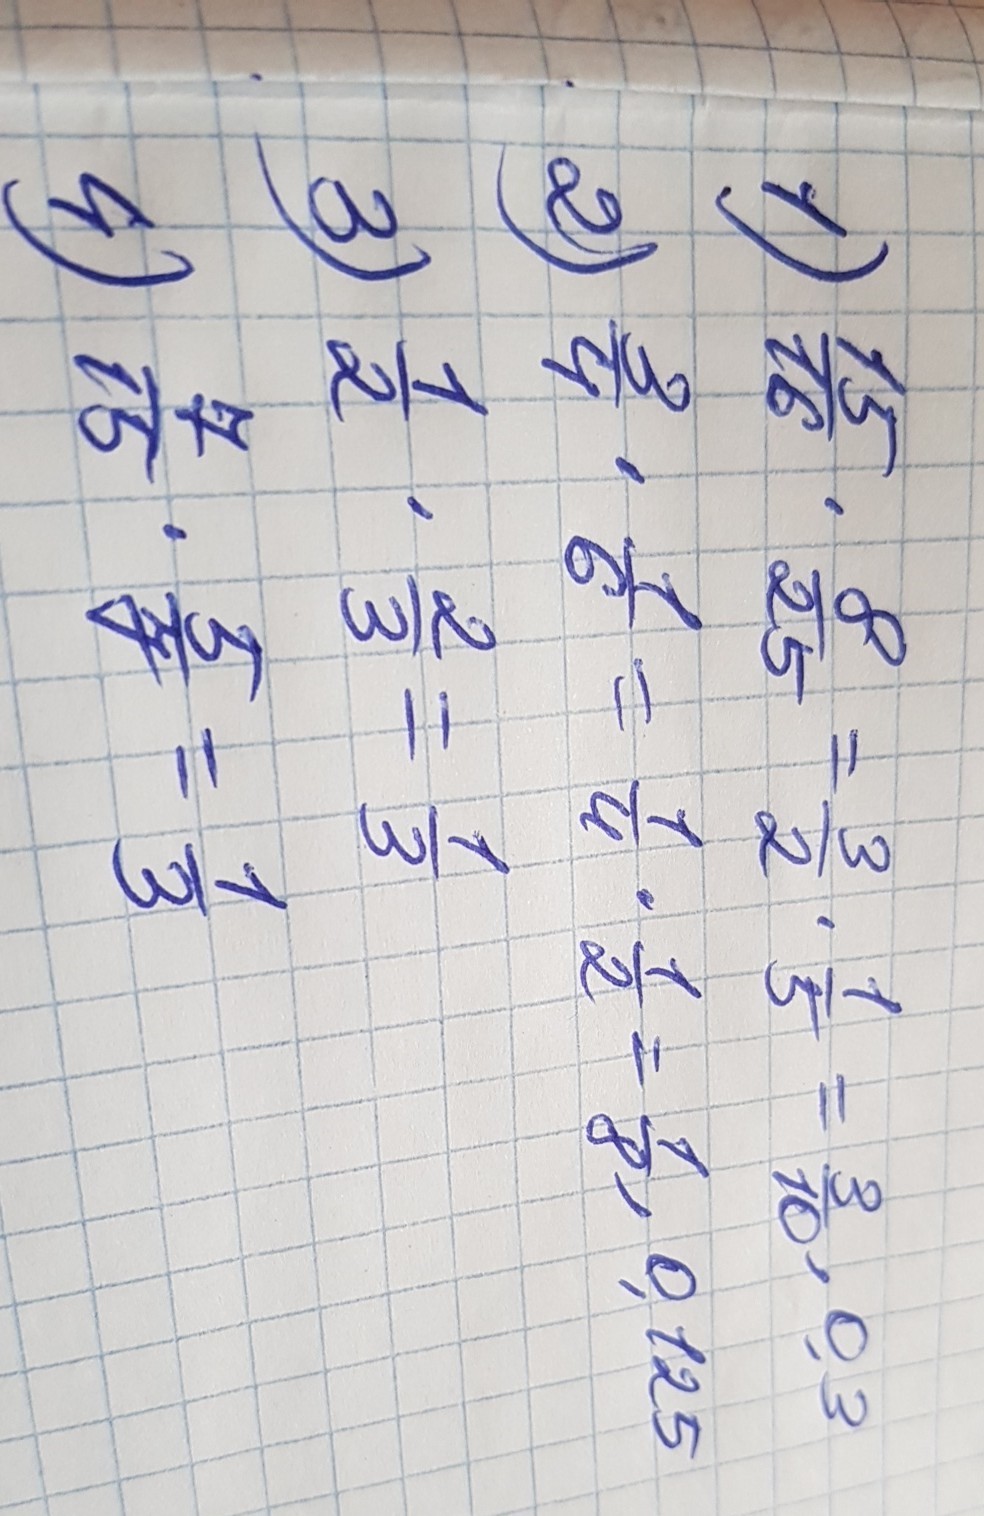 1) 15/16 · 8/25 = 3/2 · 1/5 = 3/10, 0,3
2) 3/4 · 1/6 = 1/4 · 1/2 = 1/8, 0,125
3) 1/2 · 2/3 = 1/3
4) 7/15 · 5/7 = 1/3